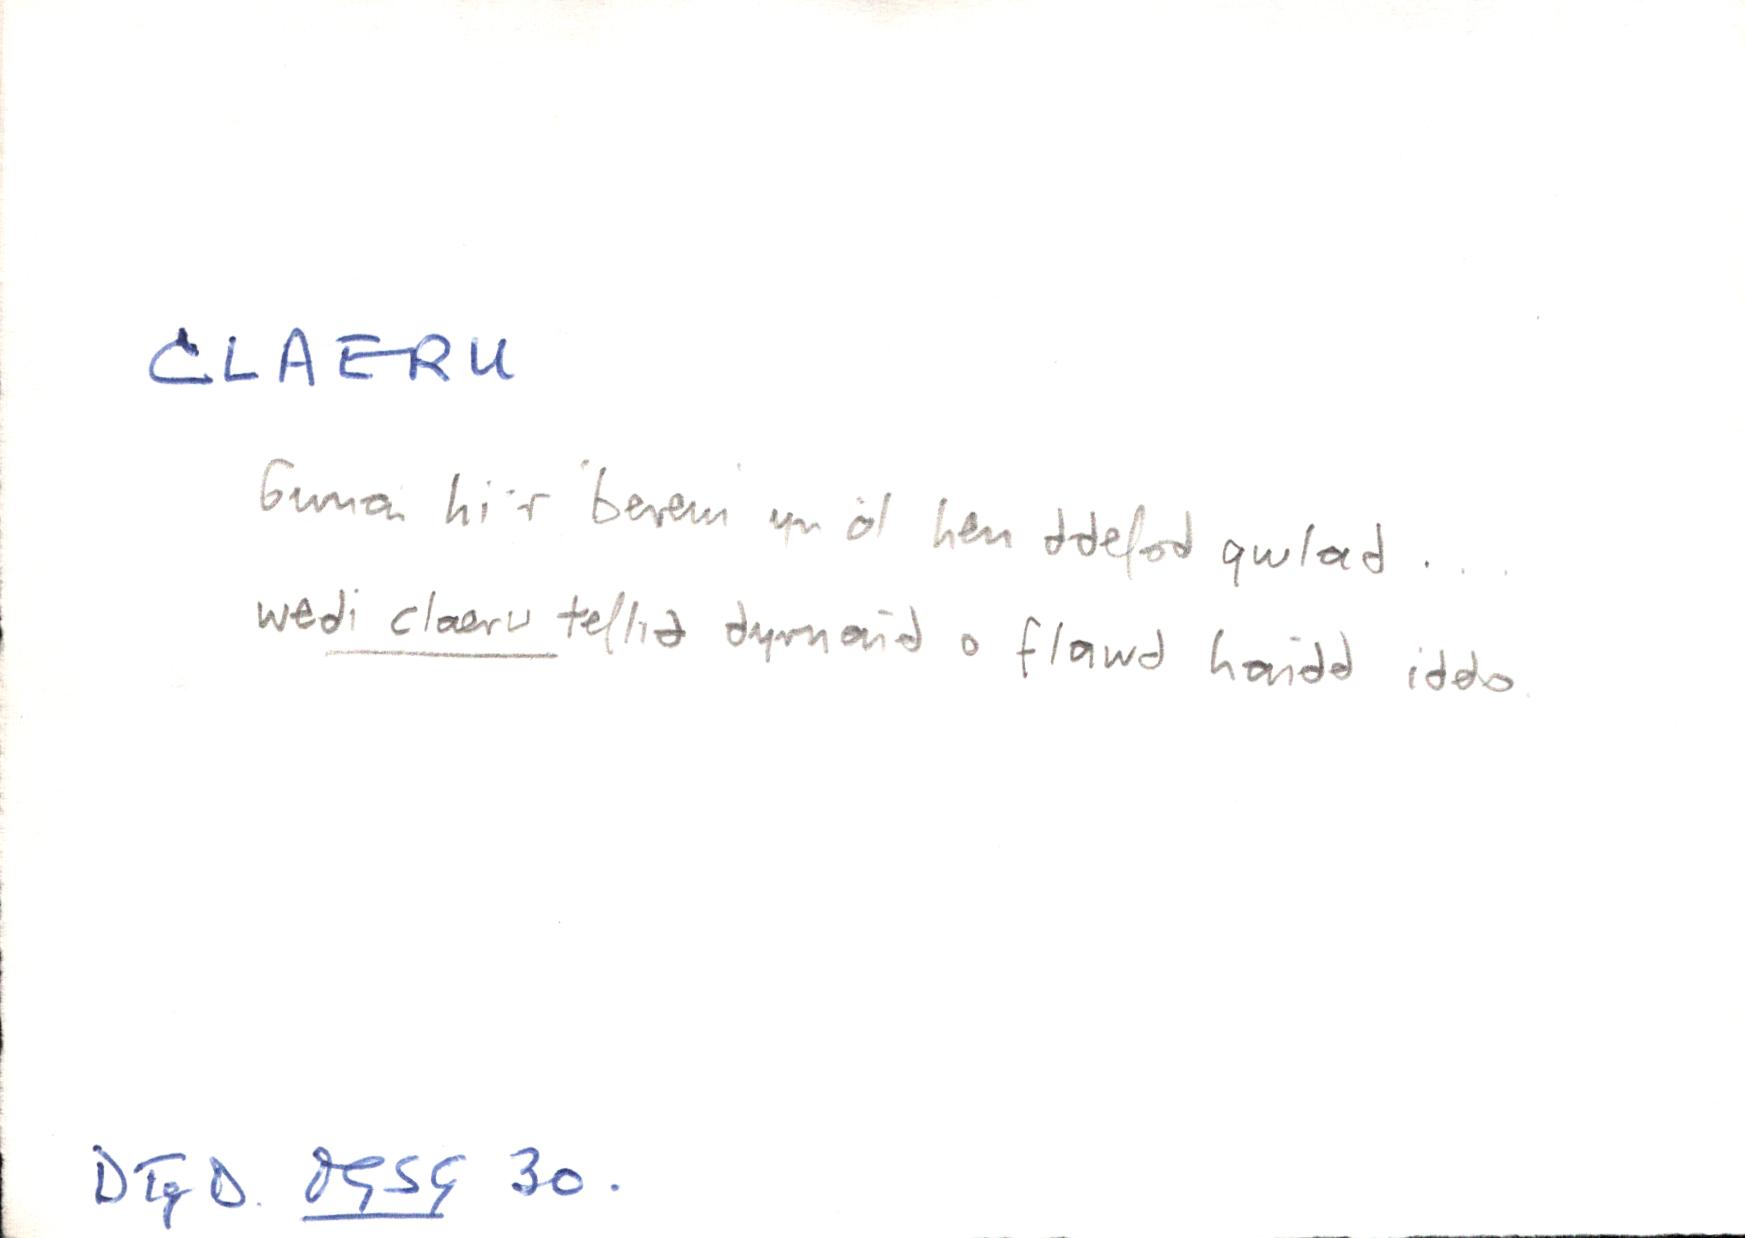 CLAERU
Gwnai hi'r 'berem' yn ôl hen ddefod gwlad ....
wedi claeru tellid dyrnaid o flawd haidd iddo.
30.